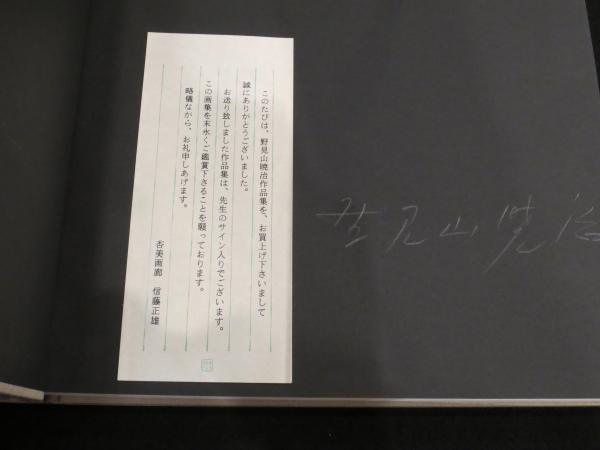 このたびは、野見山暁治作品集を、お買上げ下さいまして
誠にありがとうございました。
お送り致しました作品集は、先生のサイン入りでございます。
この画集を末永くご鑑賞下さることを願っております。
略儀ながら、お礼申しあげます。
杏美画廊 信藤正雄
野見山暁治